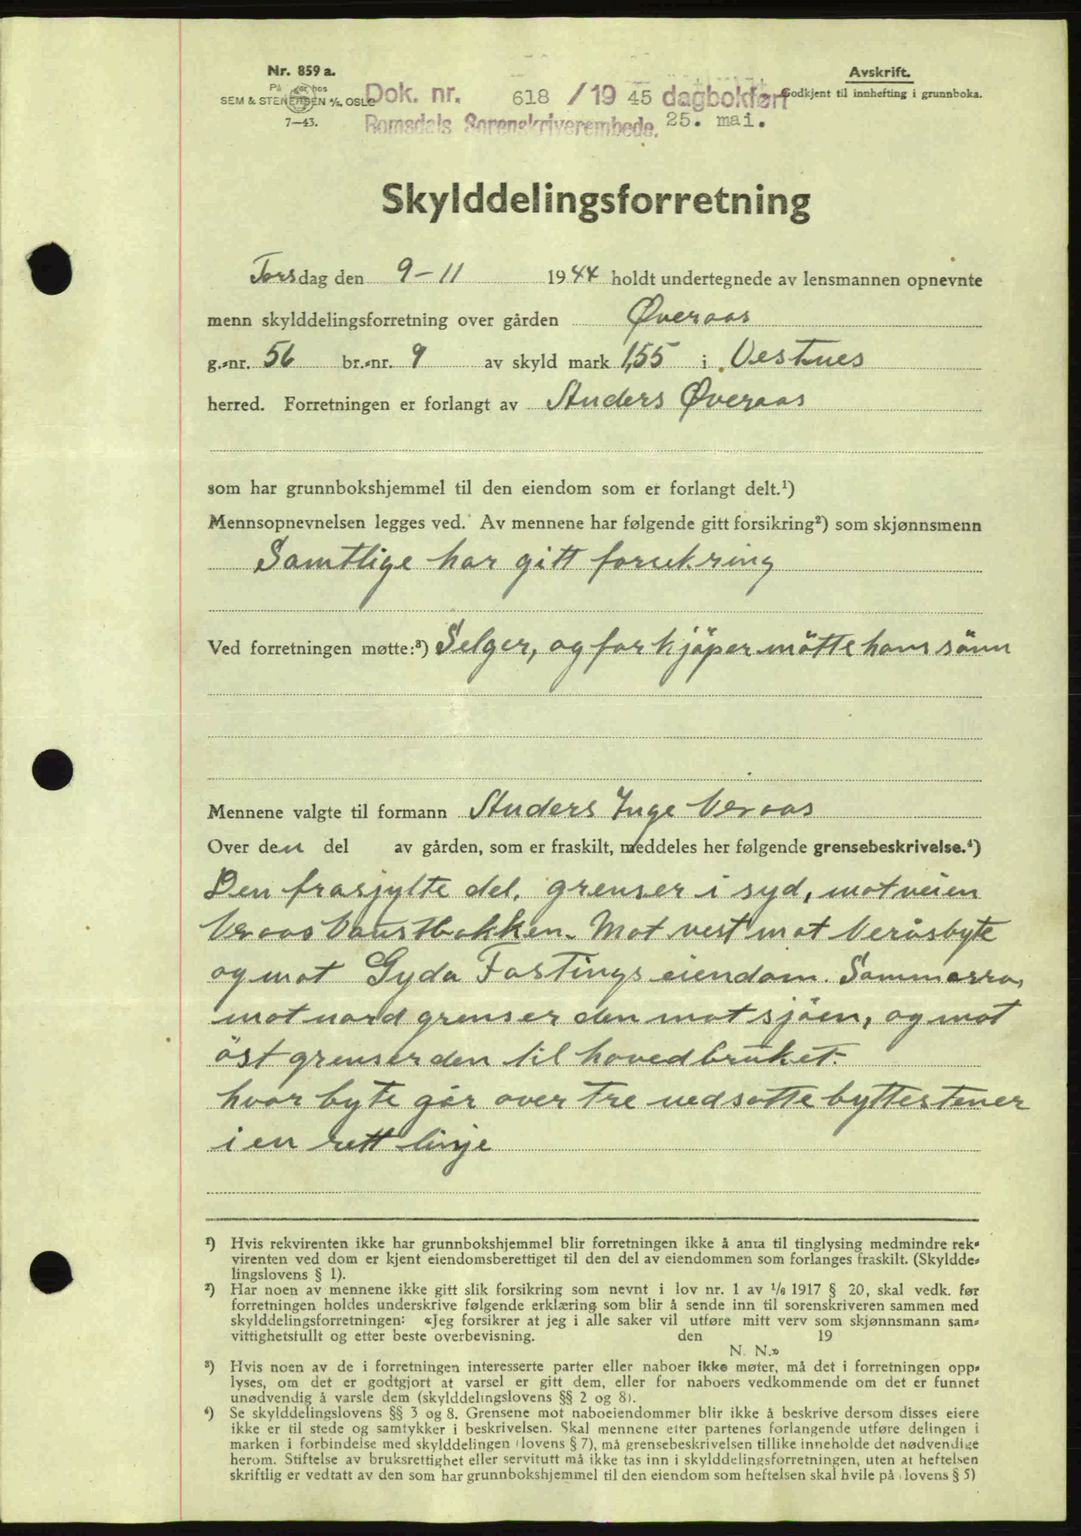 Nr. 859 a.
På hos
SEM & STENERSEN A/S, OSLO
7—43.
Avskrift.
Godkjent til innhefting i grunnboka.
Dok. nr. 618 /19 45 dagbokført
Romsdals Sorenskriverembede. 25. mai.
Skylddelingsforretning
Torsdag den 9-11 1944 holdt undertegnede av lensmannen opnevnte
menn skylddelingsforretning over gården Øveraas
g.-nr. 56 br.-nr. 9 av skyld mark 1,55 i Vestnes
herred. Forretningen er forlangt av Anders Øveraas
som har grunnbokshjemmel til den eiendom som er forlangt delt.¹)
Mennsopnevnelsen legges ved. Av mennene har følgende gitt forsikring²) som skjønnsmenn
Samtlige har gitt forsekring
Ved forretningen møtte:³) Selger, og for kjöper mötte hans sönn
Mennene valgte til formann Anders Inge Veraas
Over den del av gården, som er fraskilt, meddeles her følgende grensebeskrivelse.⁴)
Den frasjylte del, grenser i syd, mot veien
Veraas Vaustbakken. Mot vest mot Veråsbyte
og mot Gyda Fastings eiendom. Sommerro,
mot nord grenser den mot sjöen, og mot
öst grenser den til hovedbruket.
hvor byte går over tre nedsatte byttestener
i en rett linje
¹) Hvis rekvirenten ikke har grunnbokshjemmel blir forretningen ikke å anta til tinglysing medmindre rek-
virenten ved dom er kjent eiendomsberettiget til den del av eiendommen som forlanges fraskilt. (Skyldde-
lingslovens § 1).
²) Har noen av mennene ikke gitt slik forsikring som nevnt i lov nr. 1 av ¹/₆ 1917 § 20, skal vedk. før
forretningen holdes underskrive følgende erklæring som blir å sende inn til sorenskriveren sammen med
skylddelingsforretningen: «Jeg forsikrer at jeg i alle saker vil utføre mitt verv som skjønnsmann sam-
vittighetsfullt og etter beste overbevisning. den 19
N. N.»
³) Hvis noen av de i forretningen interesserte parter eller naboer ikke møter, må det i forretningen opp-
lyses, om det er godtgjort at varsel er gitt dem, eller for naboers vedkommende om det er funnet
unødvendig å varsle dem (skylddelingslovens §§ 2 og 8).
⁴) Se skylddelingslovens §§ 3 og 8. Grensene mot naboeiendommer blir ikke å beskrive dersom disses eiere
ikke er til stede og samtykker i beskrivelsen. Skal mennene etter partenes forlangende utføre delingen i
marken i forbindelse med skylddelingen (lovens § 7), må grensebeskrivelsen tillike inneholde det nødvendige
herom. Stiftelse av bruksrettighet eller servitutt må ikke tas inn i skylddelingsforretningen, uten at heftelsen
skriftlig er vedtatt av den som har grunnbokshjemmel til den eiendom som heftelsen skal hvile på (lovens § 5)